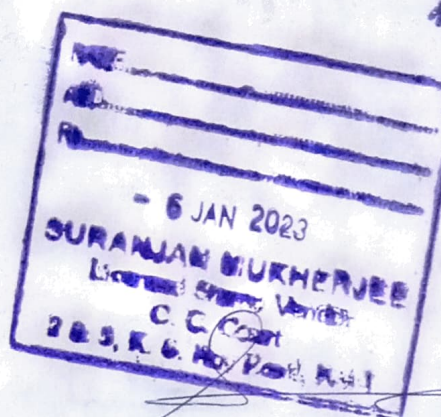 - 6 JAN 2023
SURANJAN MUKHERJEE
Licensed Stamp Vendor
C. C. Court
2 & 3, K. S. Roy Road, Kol-1